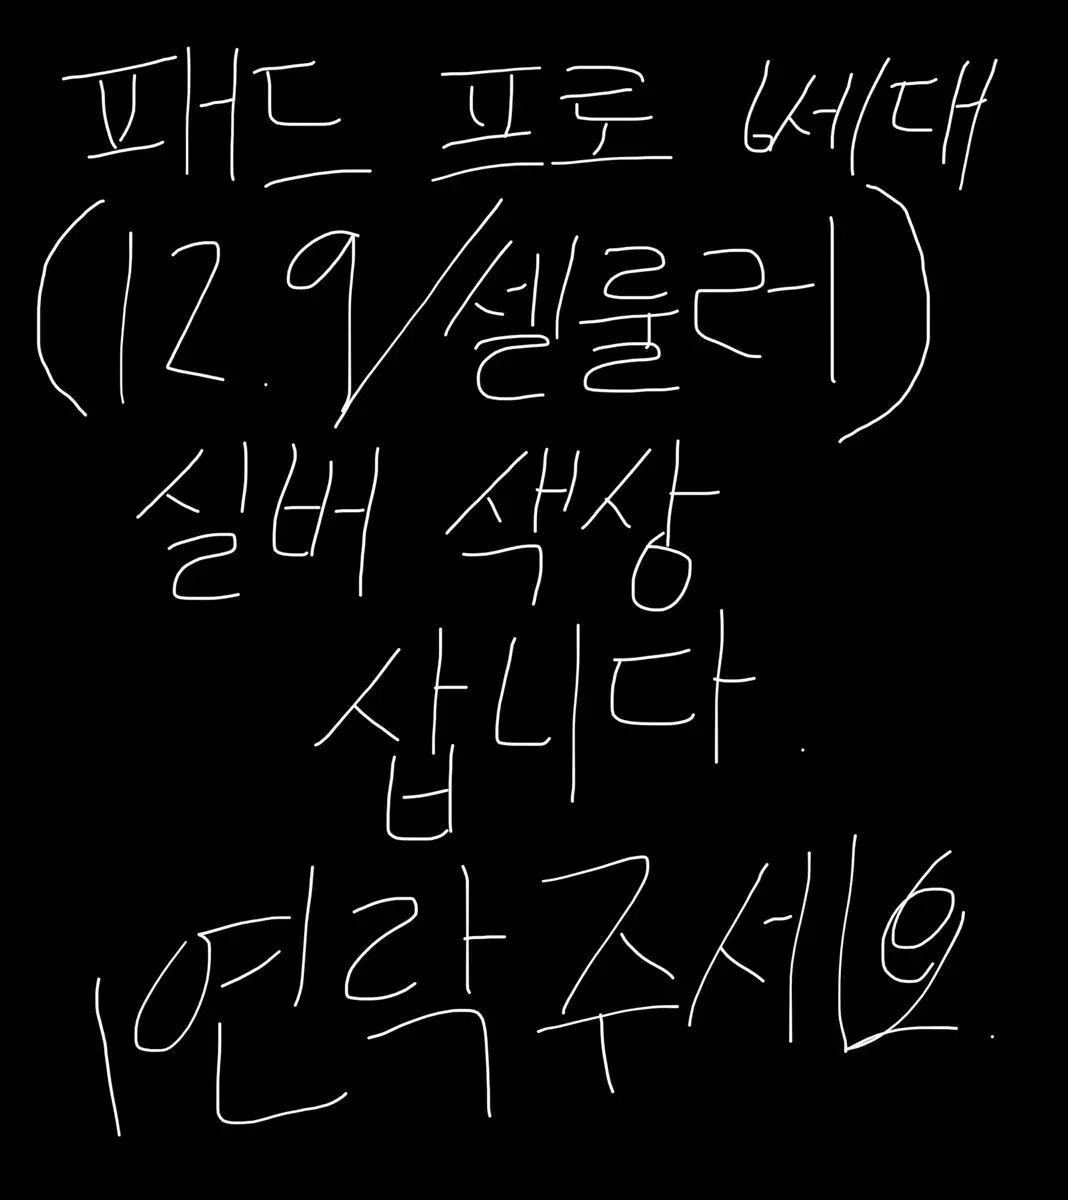 패드 프로 6세대
(12.9/셀룰러)
실버 색상
삽니다.
연락 주세요.